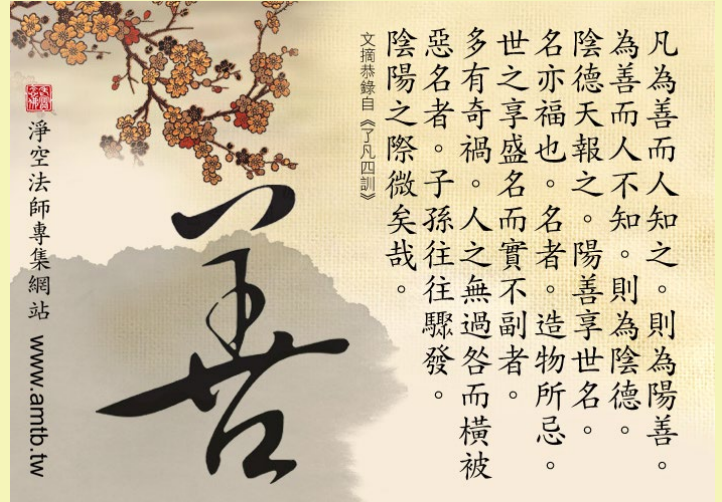 凡為善而人知之。則為陽善。
為善而人不知。則為陰德。
陰德天報之。陽善享世名。
名亦福也。名者。造物所忌。
世之享盛名而實不副者。
多有奇禍。人之無過咎而橫被
惡名者。子孫往往驟發。
陰陽之際微矣哉。
文摘恭錄自《了凡四訓》
善
淨空法師專集網站 www.amtb.tw